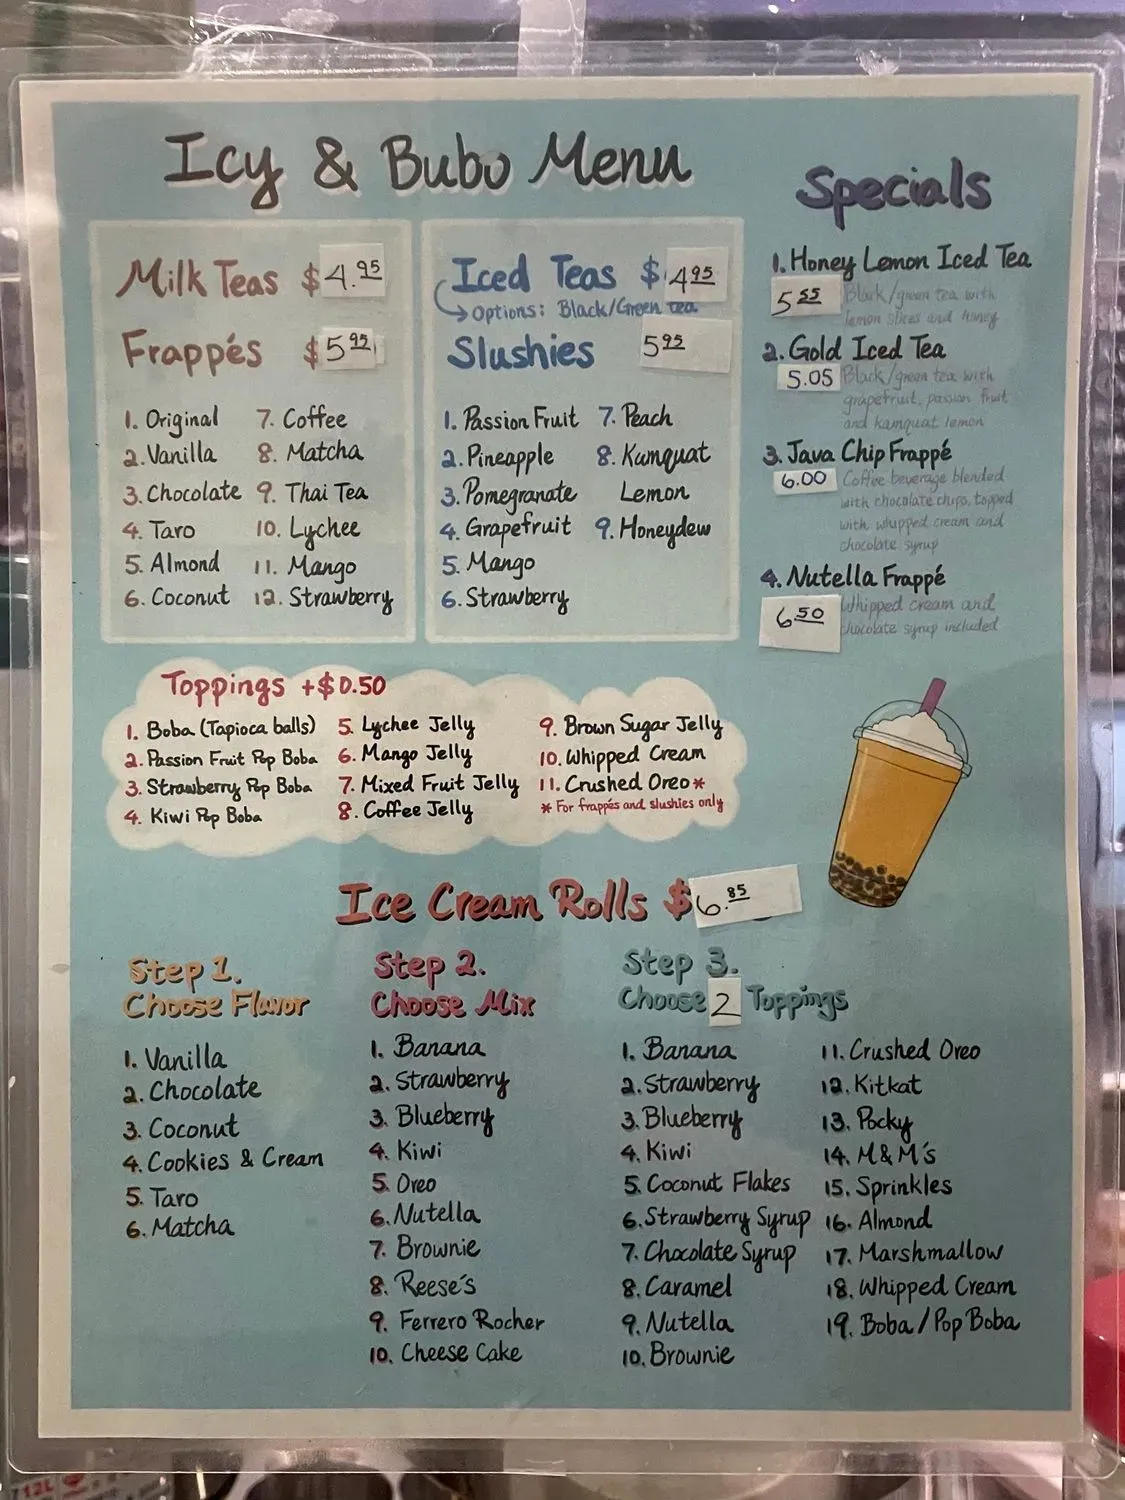 Icy & Bubo Menu
Milk Teas $4.95
Frappés $5.95
1. Original
2. Vanilla
3. Chocolate
4. Taro
5. Almond
6. Coconut
7. Coffee
8. Matcha
9. Thai Tea
10. Lychee
11. Mango
12. Strawberry
Iced Teas $4.95
Options: Black/Green tea
Slushies 5.95
1. Passion Fruit
2. Pineapple
3. Pomegranate
4. Grapefruit
5. Mango
6. Strawberry
7. Peach
8. Kumquat
Lemon
9. Honeydew
Specials
1. Honey Lemon Iced Tea
5.55 Black/green tea with
lemon slices and honey
2. Gold Iced Tea
5.05 Black/green tea with
grapefruit, passion fruit
and kamquat lemon
3. Java Chip Frappé
6.00 Coffee beverage blended
with chocolate chips, topped
with whipped cream and
chocolate syrup
4. Nutella Frappé
6.50 Whipped cream and
chocolate syrup included
Toppings +$0.50
1. Boba (Tapioca balls)
2. Passion Fruit Pop Boba
3. Strawberry Pop Boba
4. Kiwi Pop Boba
5. Lychee Jelly
6. Mango Jelly
7. Mixed Fruit Jelly
8. Coffee Jelly
9. Brown Sugar Jelly
10. Whipped Cream
11. Crushed Oreo*
* For frappés and slushies only
Ice Cream Rolls $6.85
Step 1.
Choose Flavor
1. Vanilla
2. Chocolate
3. Coconut
4. Cookies & Cream
5. Taro
6. Matcha
Step 2.
Choose Mix
1. Banana
2. Strawberry
3. Blueberry
4. Kiwi
5. Oreo
6. Nutella
7. Brownie
8. Reese's
9. Ferrero Rocher
10. Cheese Cake
Step 3.
Choose 2 Toppings
1. Banana
2. Strawberry
3. Blueberry
4. Kiwi
5. Coconut Flakes
6. Strawberry Syrup
7. Chocolate Syrup
8. Caramel
9. Nutella
10. Brownie
11. Crushed Oreo
12. Kitkat
13. Pocky
14. M&M's
15. Sprinkles
16. Almond
17. Marshmallow
18. Whipped Cream
19. Boba / Pop Boba